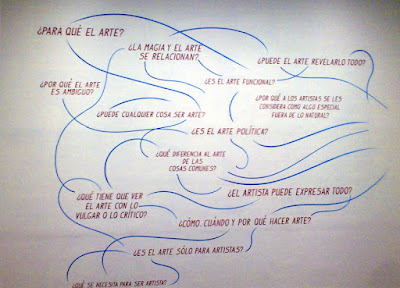 ¿PARA QUÉ EL ARTE?
¿LA MAGIA Y EL ARTE
SE RELACIONAN?
¿PUEDE EL ARTE REVELARLO TODO?
¿POR QUÉ EL ARTE
ES AMBIGUO?
¿ES EL ARTE FUNCIONAL?
¿POR QUÉ A LOS ARTISTAS SE LES
CONSIDERA COMO ALGO ESPECIAL
FUERA DE LO NATURAL?
¿PUEDE CUALQUIER COSA SER ARTE?
¿ES EL ARTE POLÍTICA?
¿QUÉ DIFERENCIA AL ARTE
DE LAS
COSAS COMUNES?
¿QUÉ TIENE QUE VER
EL ARTE CON LO
VULGAR O LO CRÍTICO?
¿EL ARTISTA PUEDE EXPRESAR TODO?
¿CÓMO, CUÁNDO Y POR QUÉ HACER ARTE?
¿ES EL ARTE SÓLO PARA ARTISTAS?
¿QUÉ SE NECESITA PARA SER ARTISTA?